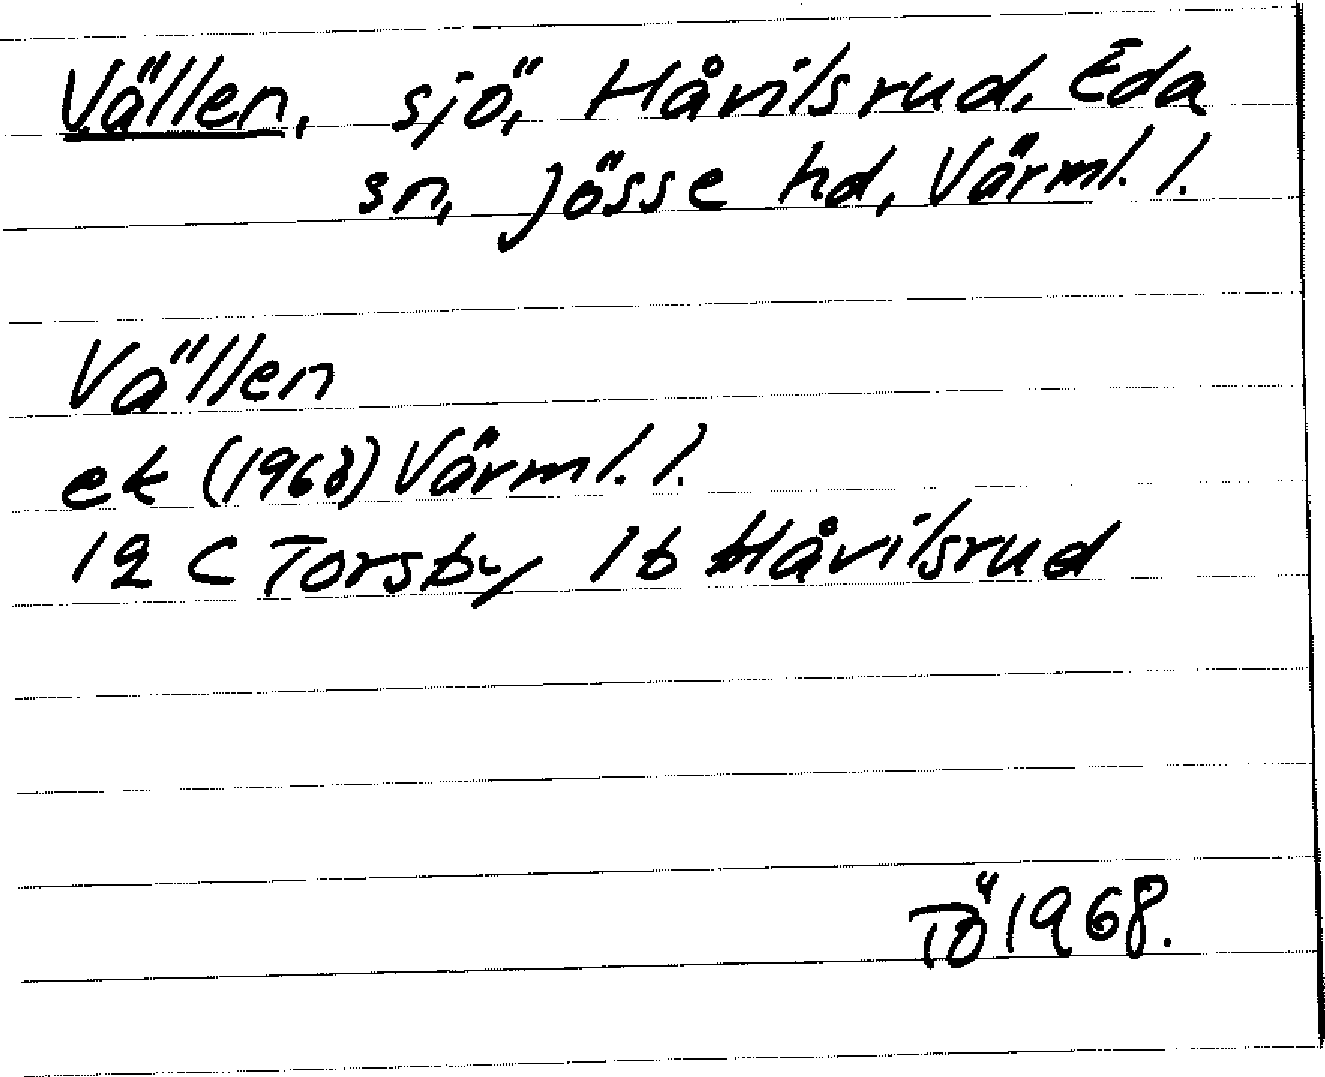 Vällen, sjö, Håvilsrud, Eda
sn, Jösse hd, Värml. l.
Vällen
ek (1968) Värml. l.
12 C Torsby 1b Håvilsrud
Tö 1968.